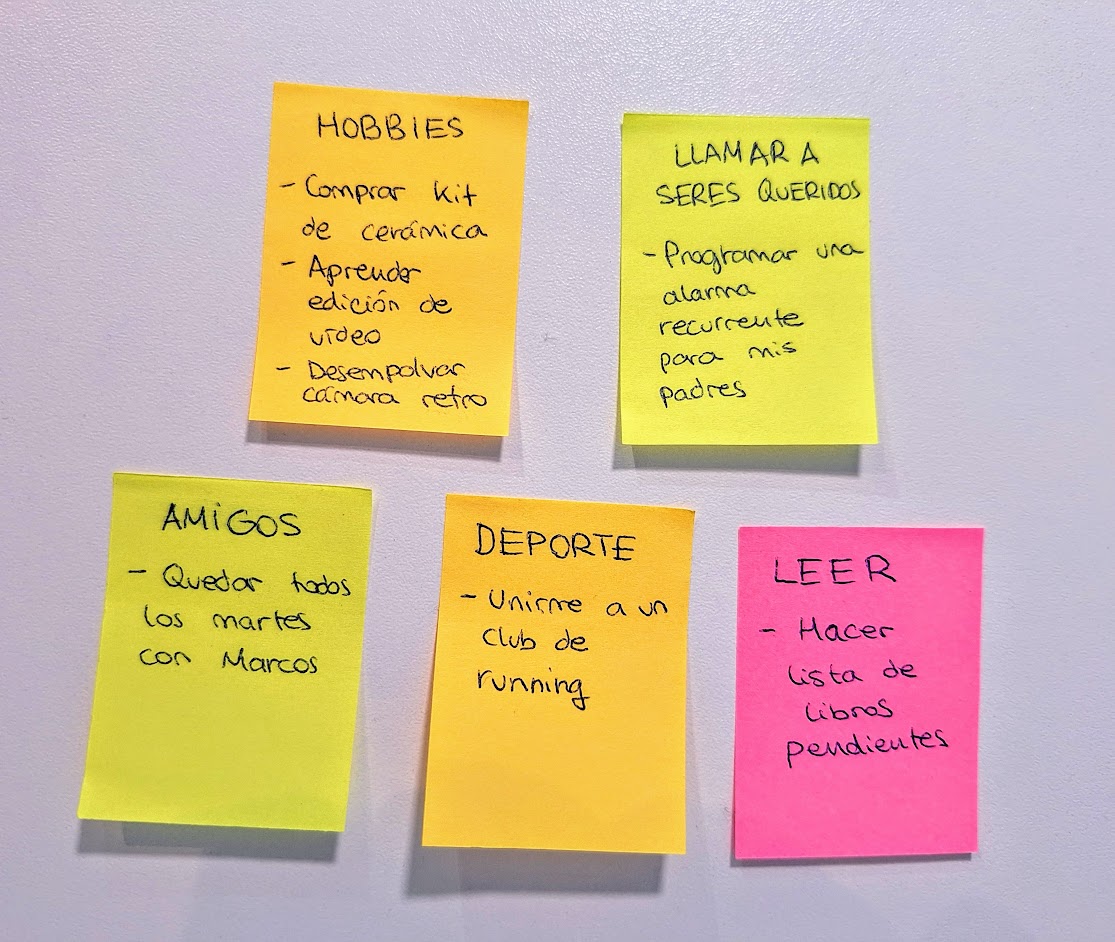 HOBBIES
- Comprar kit
de cerámica
- Aprender
edición de
vídeo
- Desempolvar
cámara retro
LLAMAR A
SERES QUERIDOS
- Programar una
alarma
recurrente
para mis
padres
AMIGOS
- Quedar todos
los martes
con Marcos
DEPORTE
- Unirme a un
club de
running
LEER
- Hacer
lista de
libros
pendientes